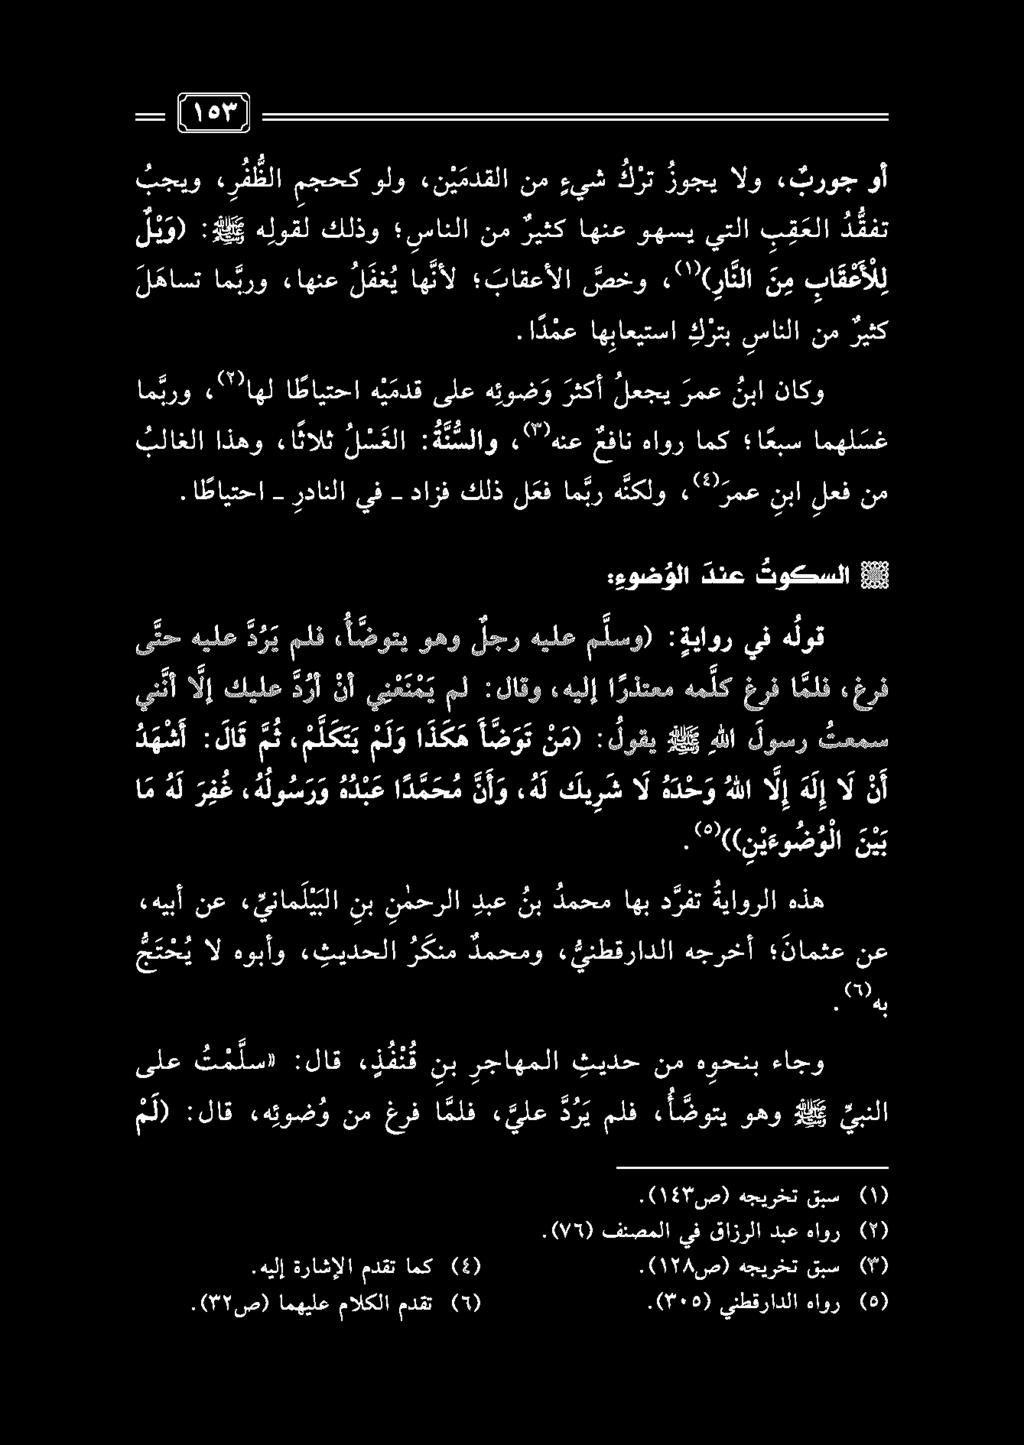 ١٥٣
أو جوربٌ، ولا يجوزُ تركُ شيءٍ من القدمَيْنِ، ولو كحجمِ الظُّفُرِ، ويجبُ
تفقُّدُ العَقِبِ التي يسهو عنها كثيرٌ من الناسِ؛ وذلك لقولِه ﷺ: (وَيْلٌ
لِلْأَعْقَابِ مِنَ النَّارِ)(١)، وخصَّ الأعقابَ؛ لأنَّها يُغفَلُ عنها، وربَّما تساهَلَ
كثيرٌ من الناسِ بتركِ استيعابِها عمْدًا.
وكان ابنُ عمرَ يجعلُ أكثرَ وَضوئِه على قدمَيْه احتياطًا لها(٢)، وربَّما
غسَلهما سبعًا؛ كما رواه نافعٌ عنه(٣)، والسُّنَّةُ: الغَسْلُ ثلاثًا، وهذا الغالبُ
من فعلِ ابنِ عمرَ(٤)، ولكنَّه ربَّما فعَل ذلك فزاد ـ في النادرِ ـ احتياطًا.
السكوتُ عندَ الوُضوءِ:
قولُه في روايةٍ: (وسلَّم عليه رجلٌ وهو يتوضَّأُ، فلم يَرُدَّ عليه حتَّى
فرغ، فلمَّا فرغ كلَّمه معتذرًا إليه، وقال: لم يَمْنَعْنِي أنْ أرُدَّ عليك إلَّا أنَّني
سمعتُ رسولَ اللهِ ﷺ يقولُ: (مَنْ تَوَضَّأَ هَكَذَا وَلَمْ يَتَكَلَّمْ، ثُمَّ قَالَ: أَشْهَدُ
أَنْ لَا إِلَهَ إِلَّا اللهُ وَحْدَهُ لَا شَرِيكَ لَهُ، وَأَنَّ مُحَمَّدًا عَبْدُهُ وَرَسُولُهُ، غُفِرَ لَهُ مَا
بَيْنَ الْوُضُوءَيْنِ))(٥).
هذه الروايةُ تفرَّد بها محمدُ بنُ عبدِ الرحمٰنِ بنِ البَيْلَمانيِّ، عن أبيه،
عن عثمانَ؛ أخرجه الدارقطنيُّ، ومحمدٌ منكَرُ الحديثِ، وأبوه لا يُحْتَجُّ
به(٦).
وجاء بنحوِه من حديثِ المهاجرِ بنِ قُنْفُذٍ، قال: «سلَّمْتُ على
النبيِّ ﷺ وهو يتوضَّأُ، فلم يَرُدَّ عليَّ، فلمَّا فرغ من وُضوئِه، قال: (لَمْ
(١) سبق تخريجه (ص١٤٣).
(٢) رواه عبد الرزاق في المصنف (٧٦).
(٣) سبق تخريجه (ص١٢٨). (٤) كما تقدم الإشارة إليه.
(٥) رواه الدارقطني (٣٠٥). (٦) تقدم الكلام عليهما (ص٣٢).